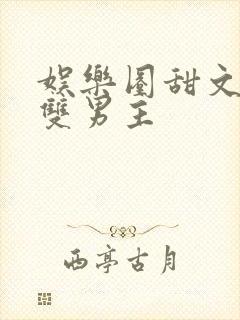 娛樂圈甜文
雙男主
西亭古月